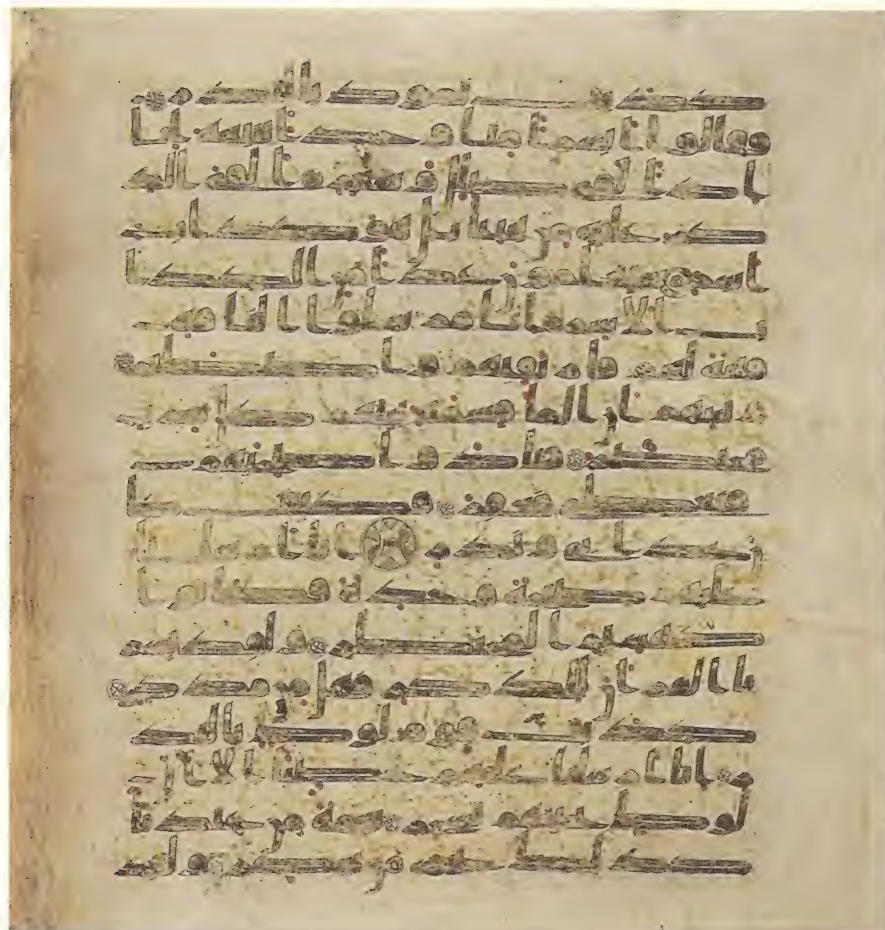 كذبت ثمود بالنذر
فقالوا ابشرا منا وحدا نتبعه انا
اذا لفي ضلل وسعر القي الذ
كر عليه من بيننا بل هو كذاب
اشر سيعلمون غدا من الكذا
ب الاشر انا مرسلوا الناقة فت
نة لهم فارتقبهم واصطبر
ونبئهم ان الما قسمة بينهم كل شرب
محتضر فنادوا صحبهم فتعا
طى فعقر فكيف كا
ن عذابي ونذر انا ارسلنا
عليهم صيحة وحدة فكانوا
كهشيم المحتظر ولقد يسر
نا القران للذكر فهل من مدكر
كذبت قوم لوط بالنذ
ر انا ارسلنا عليهم حاصبا الا ال
لوط نجينهم بسحر نعمة من عندنا
كذلك نجزي من شكر ولقد